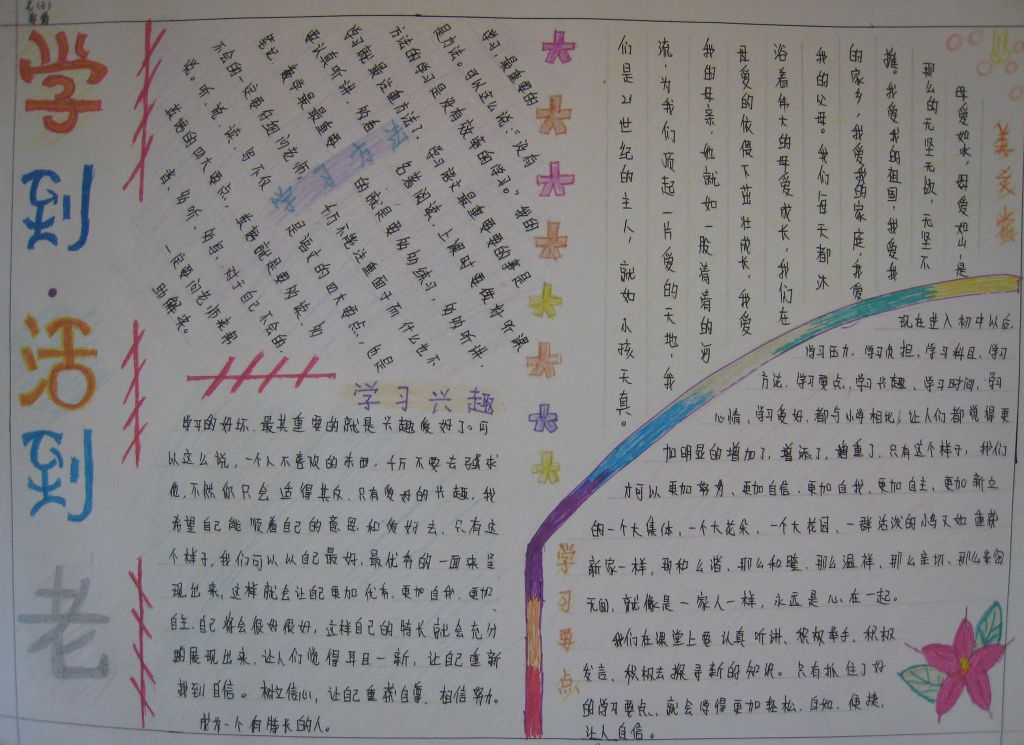 学到·活到老
学习方法
学习最重要的
是方法。可以这么说:“没有
方法的学习是没有效率的学习。”我的
学习就最注重方法了。学习语文最重要的事是
要认真听讲,勾画
笔记
不会的一定要仔细问老师,千万不能注重面子而什么也不
说。听、说、读、写不仅是语文的四大要点,也是
数学的四大要点。数学就是要勾
一定要问老师来帮
助解来。
学习兴趣
学习的好坏、最其重要的就是兴趣爱好了。可
以这么说,一个人不喜欢的东西,千万不要去强求
他,不然你只会适得其反,只有爱好的兴趣,我
希望自己能顺着自己的意思和做好去,只有这
个样子,我们可以以自己最好,最优秀的一面来呈
现出来,这样就会让自己更加优秀、更加自我、更加
自主,自己将会很好很好,这样自己的特长就会充分
的展现出来、让人们觉得耳目一新,让自己重新
找到自信。树立信心,让自己重获自尊、相信努力。
成为一个有特长的人。
美文赏
母爱如水,母爱如山,是
那么的无坚无欲,无坚不
摧。我爱我的祖国,我爱我
的家乡,我爱我的家庭,我爱
我的父母。我们每天都沐
浴着伟大的母爱成长,我们在
母爱的依偎下茁壮成长,我爱
我的母亲,她就如一股清清的河
流,为我们顶起一片爱的天地,我
们是21世纪的主人,就如小孩天真。
学习要点
现在进入初中以后,
学习压力、学习负担、学习科目、学习
方法、学习要点、学习兴趣、学习时间、学习
心情,学习爱好,都与小学相比,让人们都觉得更
加明显的增加了,增添了,增重了,只有这个样子,我们
才可以更加努力、更加自信、更加自我、更加自主、更加新立
的一个大集体,一个大花朵、一个大花园、一群活泼的小鸟又如重获
新家一样,那和么谐、那么和睦、那么温祥,那么亲切、那么亲密
无间,就像是一家人一样,永远是心在一起。
我们在课堂上要认真听讲、积极举手、积极
发言、积极去探寻新的知识。只有抓住了好
的学习要点,就会学得更加轻松、自如、便捷,
让人自信。